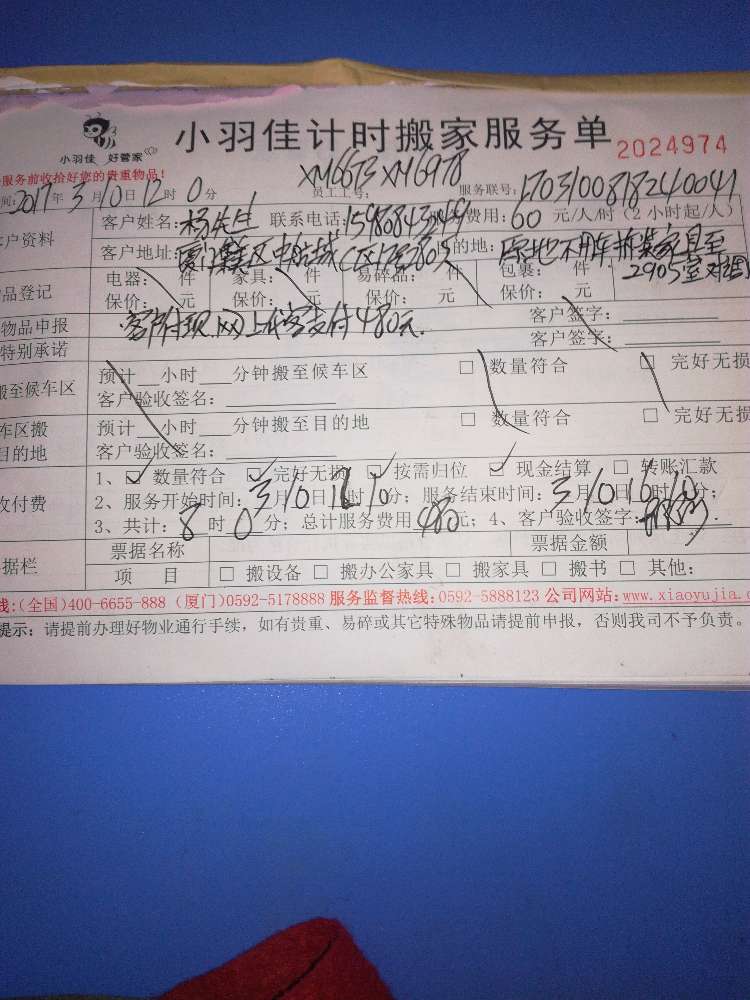 小羽佳 好管家
小羽佳计时搬家服务单 2024974
服务前收拾好您的贵重物品! XM6673 XM6978
间: 2017年 3月 10日 12时 0分 员工工号: 服务联号: 170310081824004
户资料 客户姓名: 杨先生 联系电话: 费用: 60 元/人/时(2小时起/人)
客户地址: 厦门 区中航城C区 的地: 原地不用车拆装家具至
2905室
品登记 电器: 件 家具: 件 易碎品: 件 包裹: 件
保价: 元 保价: 元 保价: 元 保价: 元
物品申报 客户付现,网上代客支付480元. 客户签字:
特别承诺 客户签字:
搬至候车区 预计 小时 分钟搬至候车区 □ 数量符合 □ 完好无损
客户验收签名:
车区搬 预计 小时 分钟搬至目的地 □ 数量符合 □ 完好无损
目的地 客户验收签名:
收付费 1、☑ 数量符合 ☑ 完好无损 ☑ 按需归位 ☑ 现金结算 □ 转账汇款
2、服务开始时间: 3月10日12时10分; 服务结束时间: 3月10日16时10分;
3、共计: 8时0分; 总计服务费用 480元; 4、客户验收签字:
据栏 票据名称 票据金额
项 目 □ 搬设备 □ 搬办公家具 □ 搬家具 □ 搬书 □ 其他:
线:(全国)400-6655-888 (厦门)0592-5178888 服务监督热线:0592-5888123 公司网站: www.xiaoyujia.
提示: 请提前办理好物业通行手续,如有贵重、易碎或其它特殊物品请提前申报,否则我司不予负责。